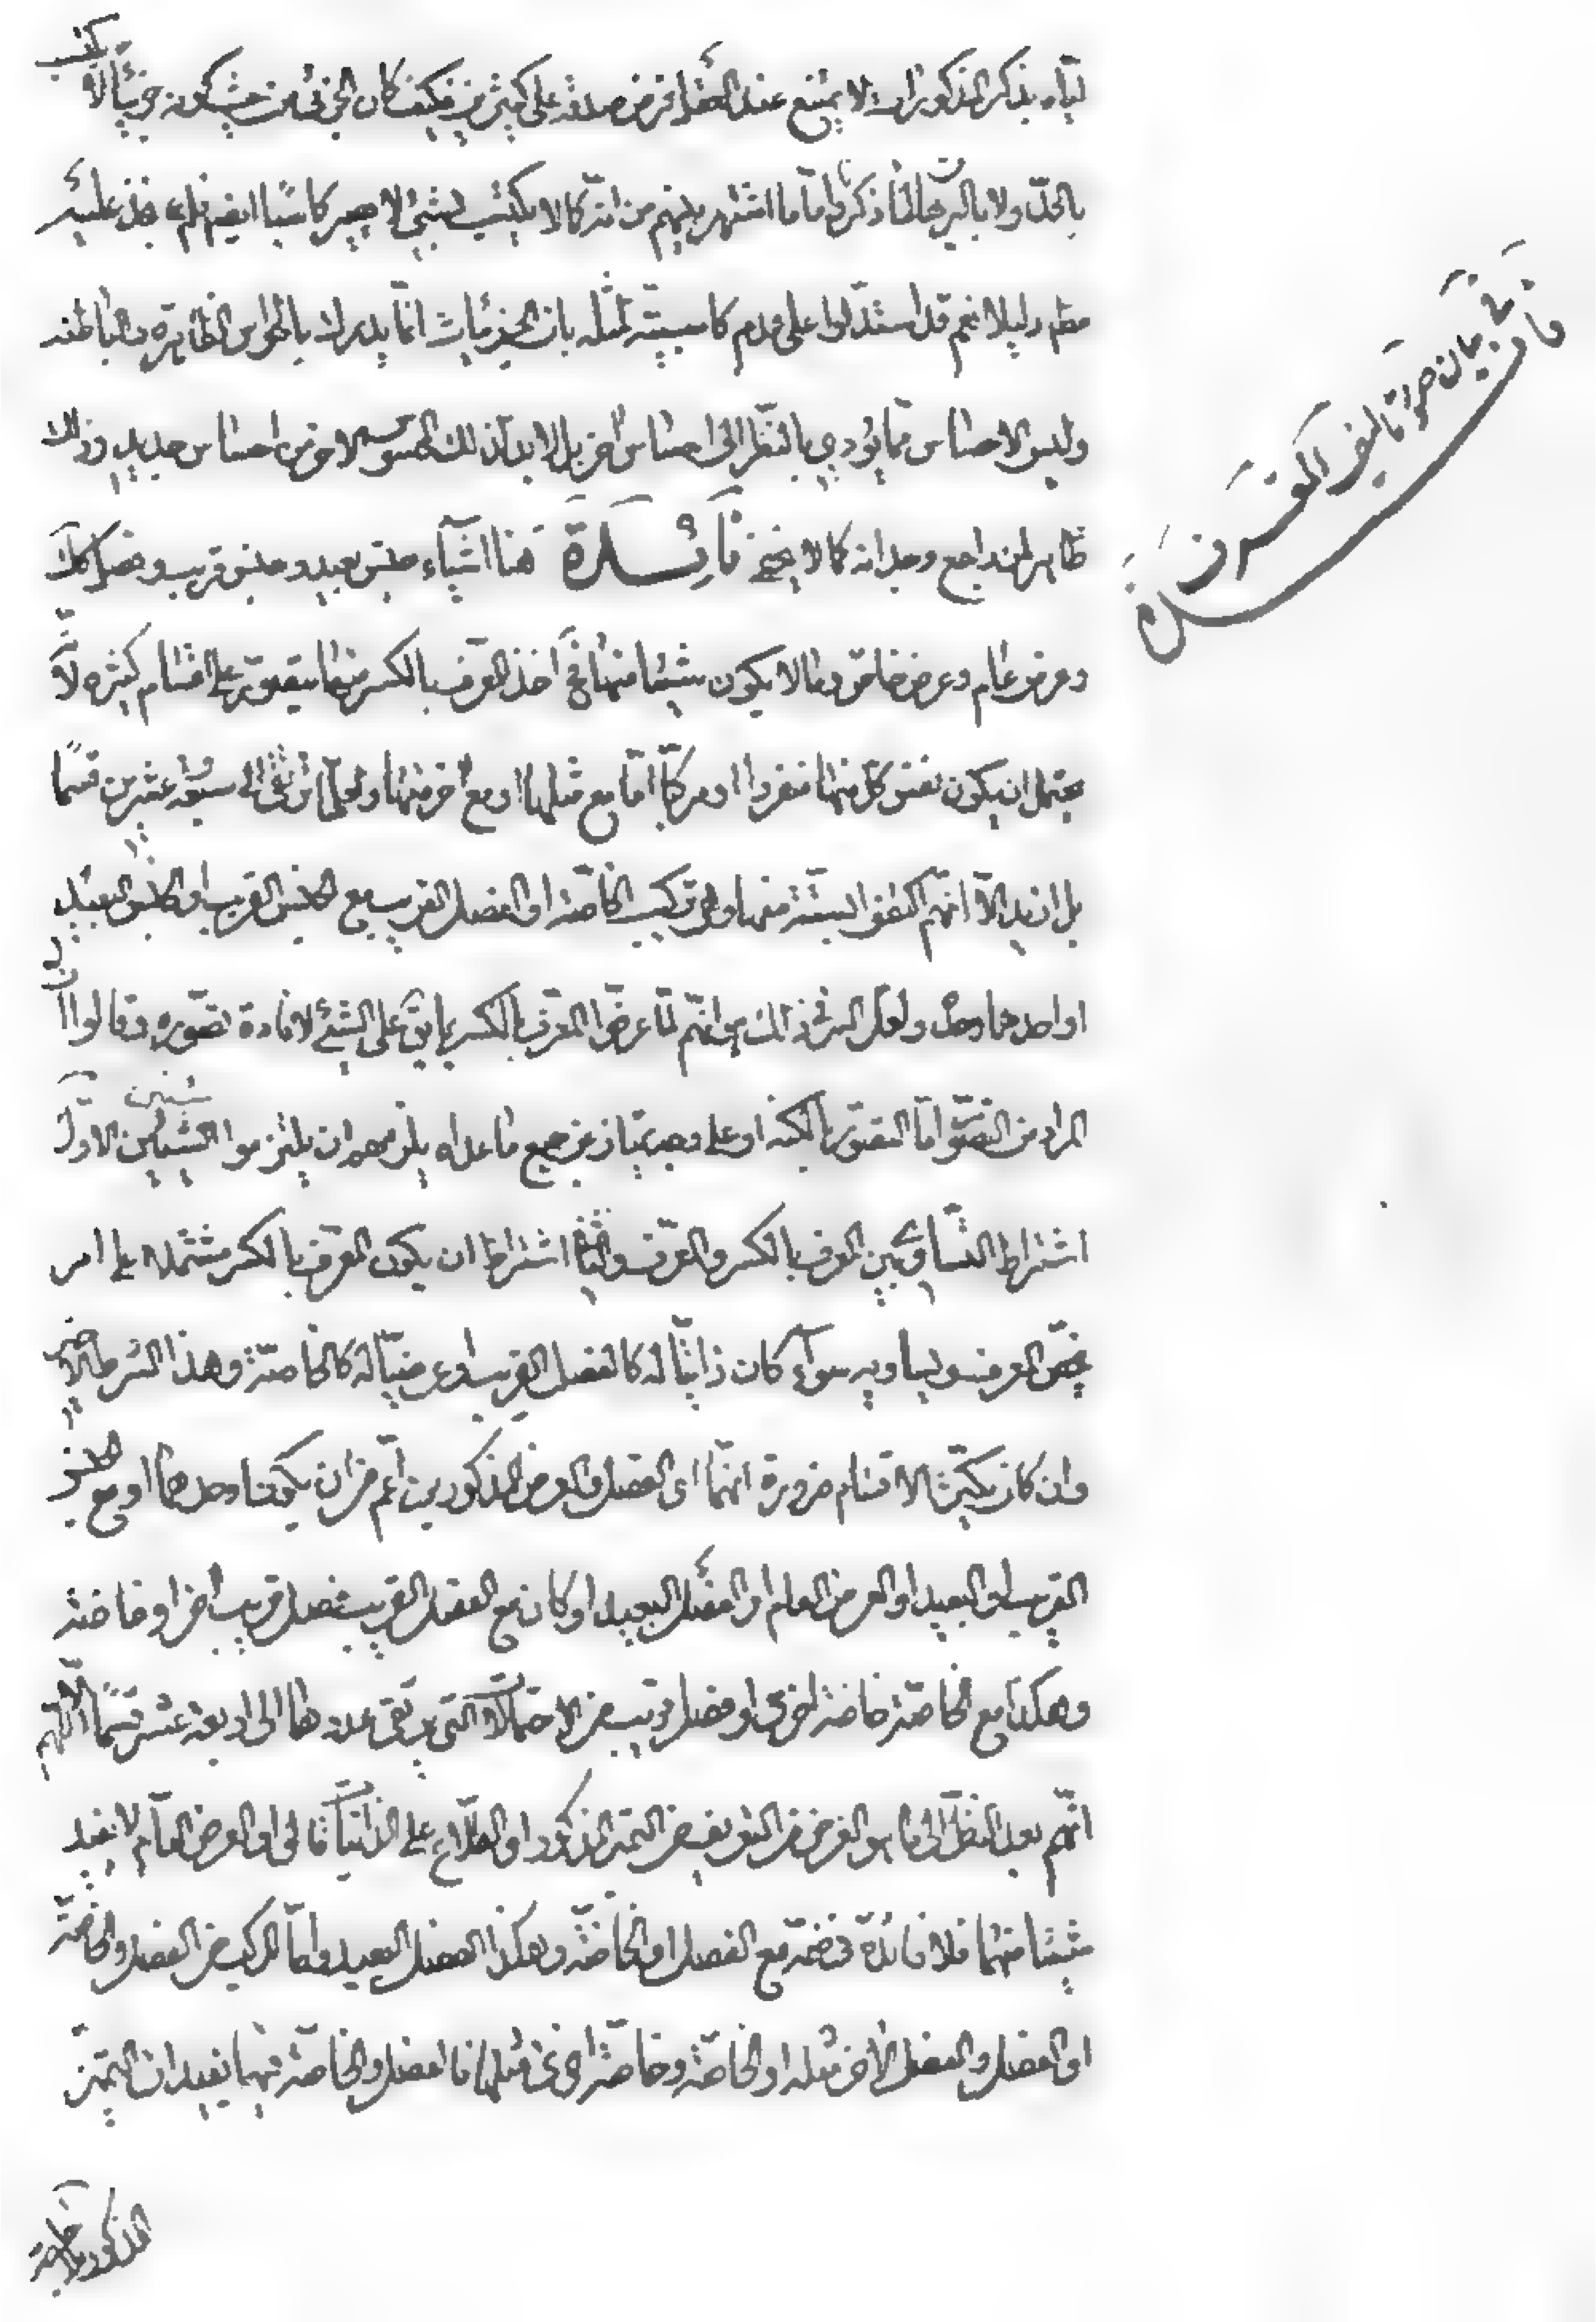 اياه بذكر المذكورات لا يمتنع عند العقل فرض صدقه على كثيرين فكيف كان الجزئي من حيث كونه جزئيا لا يكتسب
بالحد ولا بالبرهان لما ذكرنا واما ما اشتهر بينهم من انه كما لا يكتسب بشيء لا يصير كاسبا ايضا فلم نجد عليه
دليلا نعم قد استدلوا على عدم كاسبيته لمثله بان الجزئيات انما يدرك بالحواس الظاهرة والباطنة
وليس الاحساس مما يؤدي بالنظر الى احساس آخر بل لا بد لذلك المحسوس الآخر من احساس جديد وذلك
ظاهر لمن راجع وجدانه كما لا يخفى فائدة هنا اشياء جنس بعيد وجنس قريب وفصل كذلك
وعرض عام وعرض خاص وما لا يكون شيئا منها فح اخذ المعرف بالكسر منها يتصور على اقسام كثيرة لانه
يحتمل ان يكون نفس كل منها منفردا او مركبا اما مع مثلها او مع آخر منها ولعلها ترتقي الى سبعة وعشرين قسما
بل ازيد الا انهم اكتفوا بستة منها وهي تركيب الخاصة او الفصل القريب مع الجنس القريب او الجنس البعيد
او احدهما وحده ولعل السر في ذلك هو انهم لما عرفوا المعرف بالكسر بما يق على الشيء لافادة تصوره وقالوا ان
المراد من التصور اما التصور بالكنه او على وجه يمتاز عن جميع ما عداه يلزمهم ان يلتزموا شيئين الاول
اشتراط التساوي بين المعرف بالكسر والمعرف والثاني اشتراط ان يكون المعرف بالكسر مشتملا على امر
يخص المعرف ويساويه سواء كان ذاتيا له كالفصل القريب او عرضيا له كالخاصة وهذا الشرط الاخير
وان كان يكثر الاقسام ضرورة انهما اى الفصل والعرض المذكورين اعم من ان يكونا وحدهما او مع الجنس
القريب او البعيد او العرض العام او الفصل البعيد او كان مع الفصل القريب فصل قريب آخر او خاصة
وهكذا مع الخاصة خاصة اخرى او فصل قريب من الاحتمالات التي يرتقي عددها الى اربعة عشر قسما الا انهم
انهم بعد النظر الى ما هو الغرض من التعريف من التميز المذكور او الاطلاع على الذاتيات قالوا العرض العام لا يفيد
شيئا منهما فلا فائدة في ضمه مع الفصل او الخاصة وهكذا الفصل البعيد واما المركب من الفصل والخاصة
او الفصل والفصل الآخر مثله او الخاصة وخاصة اخرى مثلها فالفصل والخاصة فيها يفيدان التميز
المذكور فلا حاجة
فائدة في بيان صور تأليف المعرف